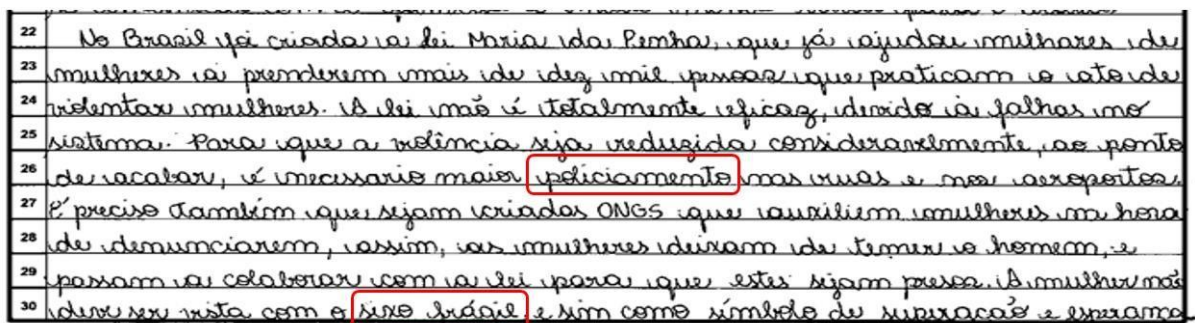 22 No Brasil foi criada a lei Maria da Penha, que já ajudou milhares de
23 mulheres a prenderem mais de dez mil pessoas que praticam o ato de
24 violentar mulheres. A lei não é totalmente eficaz, devido à falhas no
25 sistema. Para que a violência seja reduzida consideravelmente, ao ponto
26 de acabar, é necessario maior policiamento nas ruas e nos aeroportos.
27 É preciso também que sejam criadas ONGS que auxiliem mulheres na hora
28 de denunciarem, assim, as mulheres deixam de temer o homem, e
29 passam a colaborar com a lei para que estes sejam presos. A mulher não
30 deve ser vista com o sexo frágil, e sim como símbolo de superação e esperança